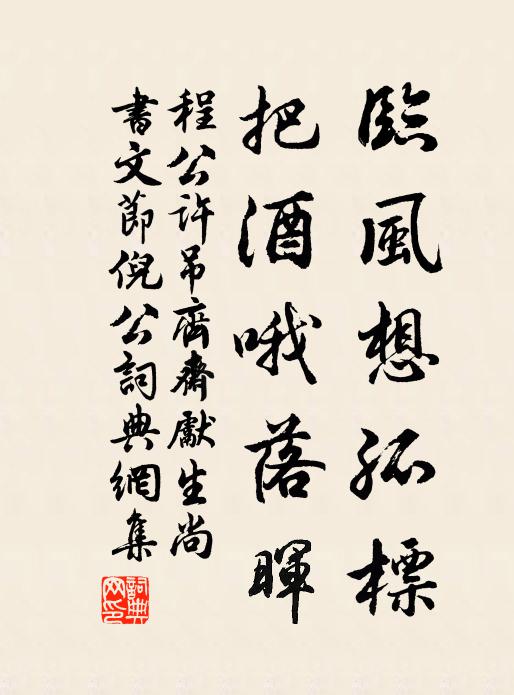 臨風想孤標
把酒哦落暉
程公許吊齊齋獻生尚
書文節倪公詞典網集
詞典网印